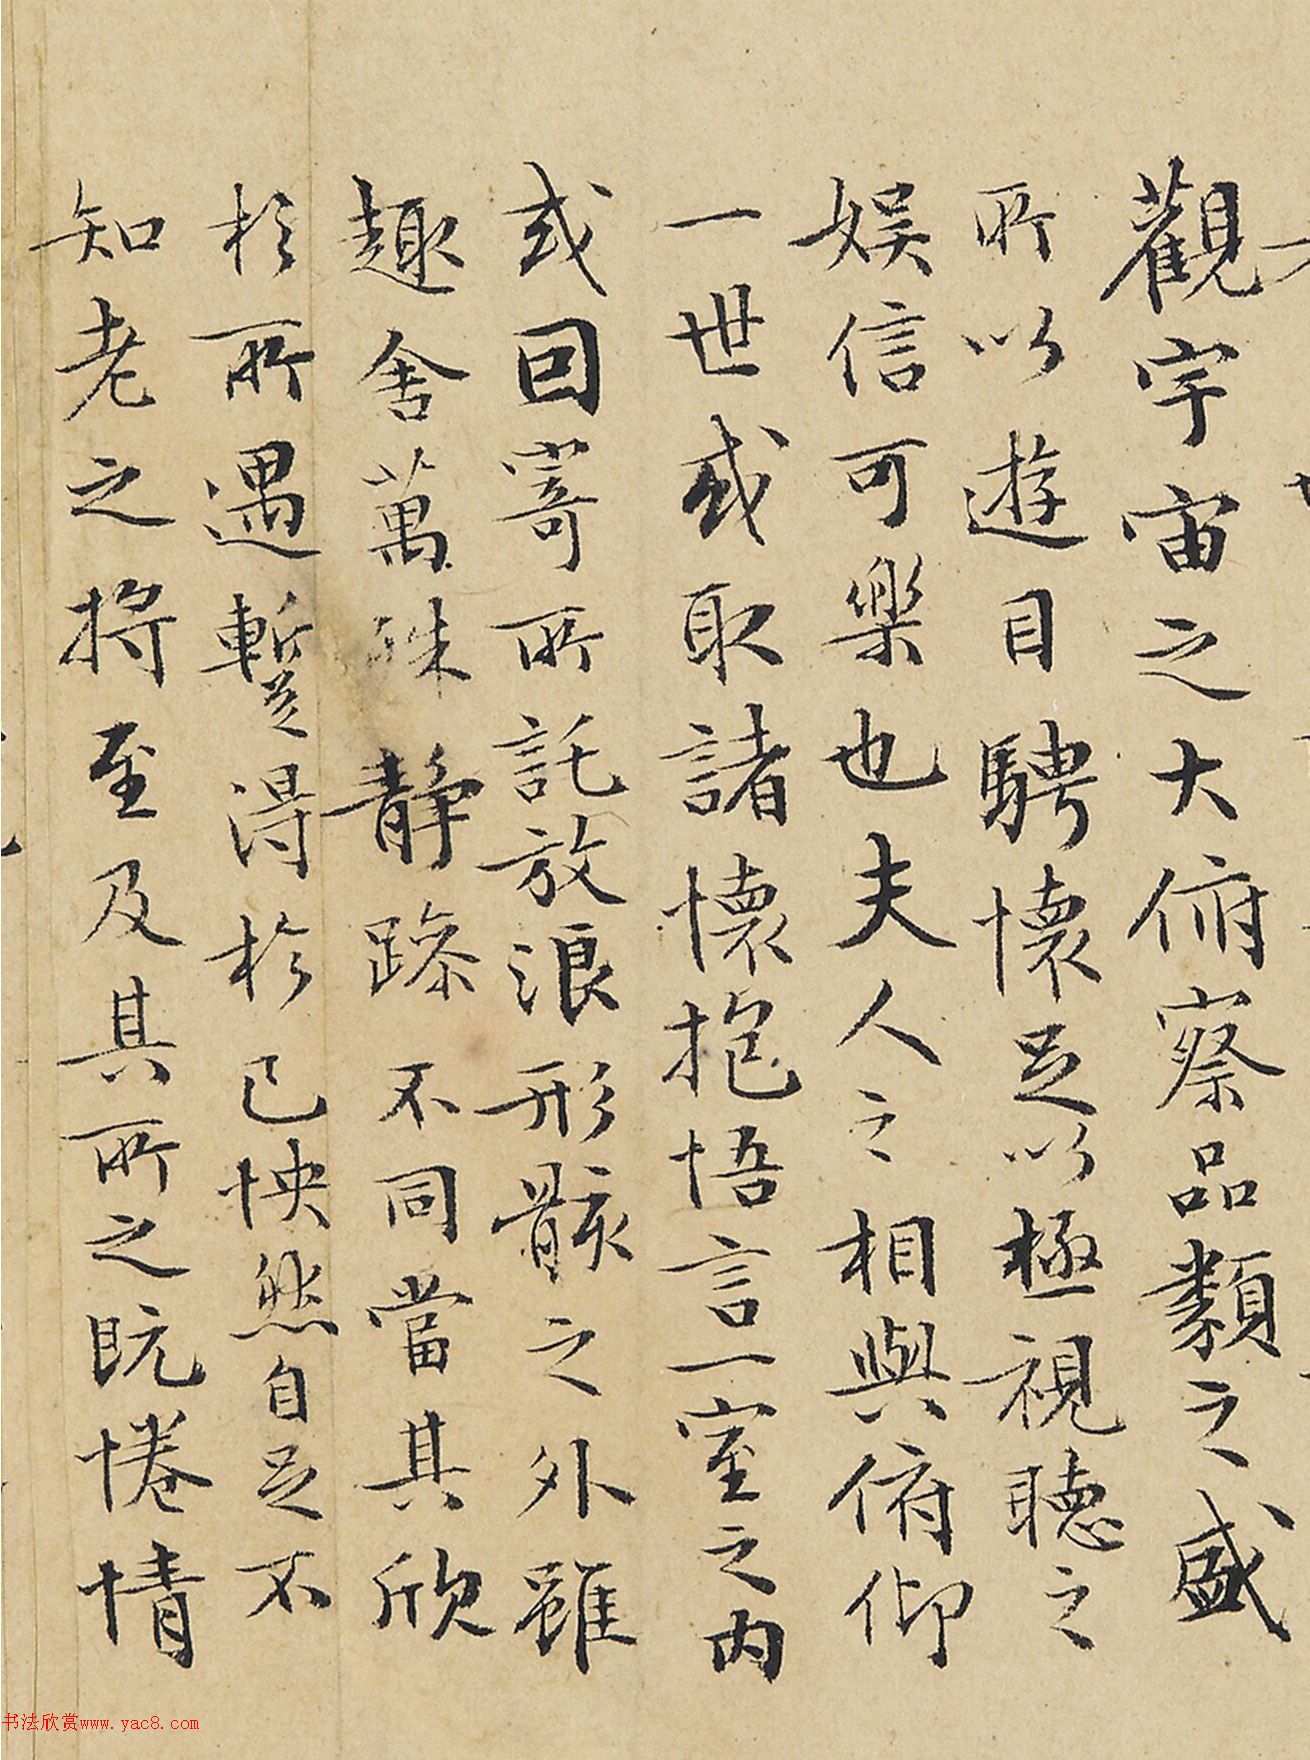 觀宇宙之大俯察品類之盛
所以遊目騁懷足以極視聴之
娱信可樂也夫人之相與俯仰
一世或取諸懷抱悟言一室之内
或因寄所託放浪形骸之外雖
趣舍萬殊静躁不同當其欣
於所遇暫得於己怏然自足不
知老之将至及其所之既惓情
书法欣赏www.yac8.com